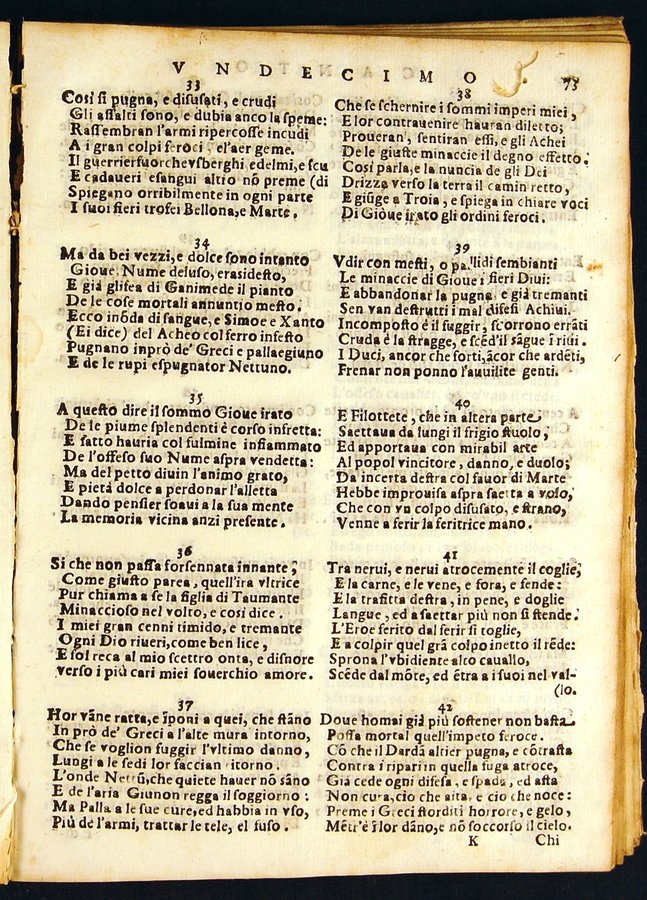 VNDECIMO
73
33
Cosi si pugna, e disusati, e crudi
Gli assalti sono, e dubia anco la speme:
Rassembran l'armi ripercosse incudi
A i gran colpi feroci, el'aer geme.
Il guerrier fuor che vsberghi ed elmi, e scu
E cadaueri esangui altro nō preme (di
Spiegano orribilmente in ogni parte
I suoi fieri trofei Bellona, e Marte.
34
Ma da bei vezzi, e dolce sono intanto
Gioue, Nume deluso, era si desto,
E già glisea di Ganimede il pianto
De le cose mortali annuntio mesto.
Ecco inōda di sangue, e Simoe e Xanto
(Ei dice) del Acheo col ferro infesto
Pugnano in prò de' Greci e palla e giuno
E de le rupi espugnator Nettuno.
35
A questo dire il sommo Gioue irato
De le piume splendenti è corso in fretta:
E fatto hauria col fulmine infiammato
De l'offeso suo Nume aspra vendetta:
Ma del petto diuin l'animo grato,
E pietà dolce a perdonar l'alletta
Dando pensier soaui a la sua mente
La memoria vicina anzi presente.
36
Si che non passa forsennata innante,
Come giusto parea, quell'ira vltrice
Pur chiama a se la figlia di Taumante
Minaccioso nel volto, e cosi dice.
I miei gran cenni timido, e tremante
Ogni Dio riueri, come ben lice,
E sol reca al mio scettro onta, e disnore
verso i più cari miei souerchio amore.
37
Hor vāne ratta, e īponi a quei, che stāno
In prò de' Greci a l'alte mura intorno,
Che se voglion fuggir l'vltimo danno,
Lungi a le sedi lor faccian ritorno.
L'onde Nettū, che quiete hauer nō sāno
E de l'aria Giunon regga il soggiorno:
Ma Palla a le sue cure, ed habbia in vso,
Più de l'armi, trattar le tele, el fuso.
38
Che se schernire i sommi imperi miei,
E lor contrauenire hauran diletto;
Proueran', sentiran essi, e gli Achei
De le giuste minaccie il degno effetto.
Cosi parla, e la nuncia de gli Dei
Drizza verso la terra il camin retto,
E giūge a Troia, e spiega in chiare voci
Di Gioue irato gli ordini feroci.
39
Vdir con mesti, o pallidi sembianti
Le minaccie di Gioue i fieri Diui:
E abbandonar la pugna, e già tremanti
Sen van destrutti i mal difesi Achiui.
Incomposto è il fuggir, scorrono errāti
Cruda è la stragge, e scēd'il sāgue i riui.
I Duci, ancor che forti, ācor che ardēti,
Frenar non ponno l'auuilite genti.
40
E Filottete, che in altera parte
Saettaua da lungi il frigio stuolo,
Ed apportaua con mirabil arte
Al popol vincitore, danno, e duolo;
Da incerta destra col fauor di Marte
Hebbe improuisa aspra saetta a volo,
Che con vn colpo disusato, e strano,
Venne a ferir la feritrice mano.
41
Tra nerui, e nerui atrocemente il coglie,
E la carne, e le vene, e fora, e fende:
E la trafitta destra, in pene, e doglie
Langue, ed a saettar più non si stende.
L'Eroe ferito dal ferir si toglie,
E a colpir quel grā colpo inetto il rēde:
Sprona l'vbidiente alto cauallo,
Scēde dal mōte, ed ētra a i suoi nel val-
(lo.
42
Doue homai già più sostener non basta
Possa mortal quell'impeto feroce.
Cō che il Dardā altier pugna, e cōtrasta
Contra i ripari in quella fuga atroce,
Già cede ogni difesa, e spada, ed asta
Non cura, cio che aita, e cio che noce:
Preme i Greci storditi horrore, e gelo,
Mētr'è ī lor dāno, e nō soccorso il cielo.
K
Chi